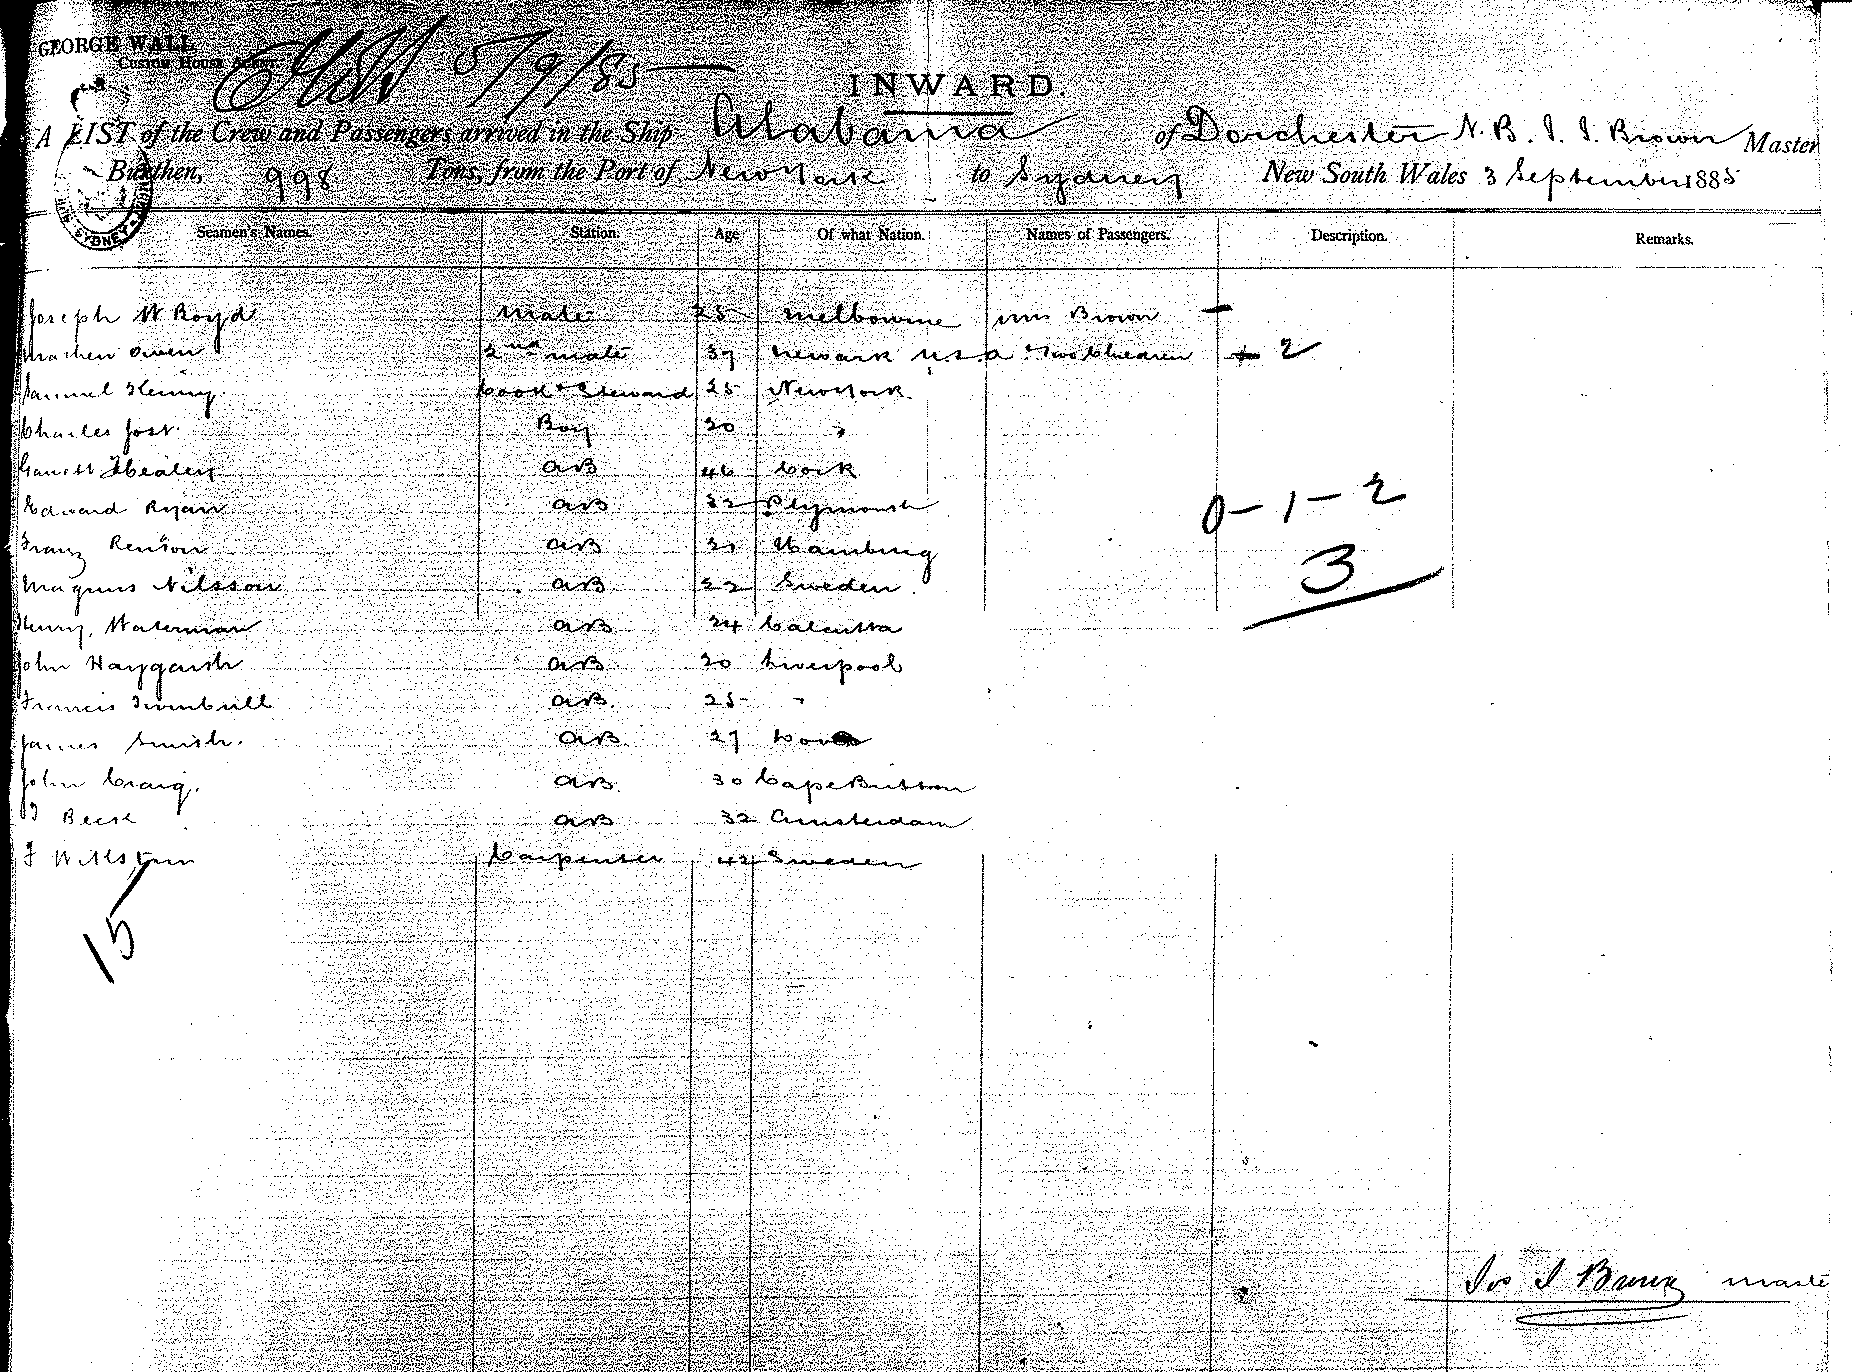 GEORGE WALL
Custom House
5/9/85
INWARD.
A LIST of the Crew and Passengers arrived in the Ship Alabama of Dorchester N.B. J. I. Brown Master
Burthen, 998 Tons, from the Port of New York to Sydney New South Wales 3 September 1885
SYDNEY
Seamen's Names. Station. Age Of what Nation. Names of Passengers. Description. Remarks.
Joseph W Boyd Mate 25 Melbourne Mrs Brown —
Owen 2nd mate 37 Newark U.S.A Two Children 2
Samuel Cook & Steward 25 New York
Charles Jost Boy 20 "
Garrett Healey AB 46 Cork
Edward Ryan AB 32 Plymouth
Franz AB Hamburg
Magnus Nilsson AB 22 Sweden
Henry Waterman AB 24 Calcutta
John Haygarth AB 30 Liverpool
Francis Turnbull AB 25 "
James Smith. AB 27
John Craig. AB 30 Cape Britton
J Beck AB 32 Amsterdam
Carpenter 42 Sweden
0 - 1 - 2
3
15
Jos I Brown master